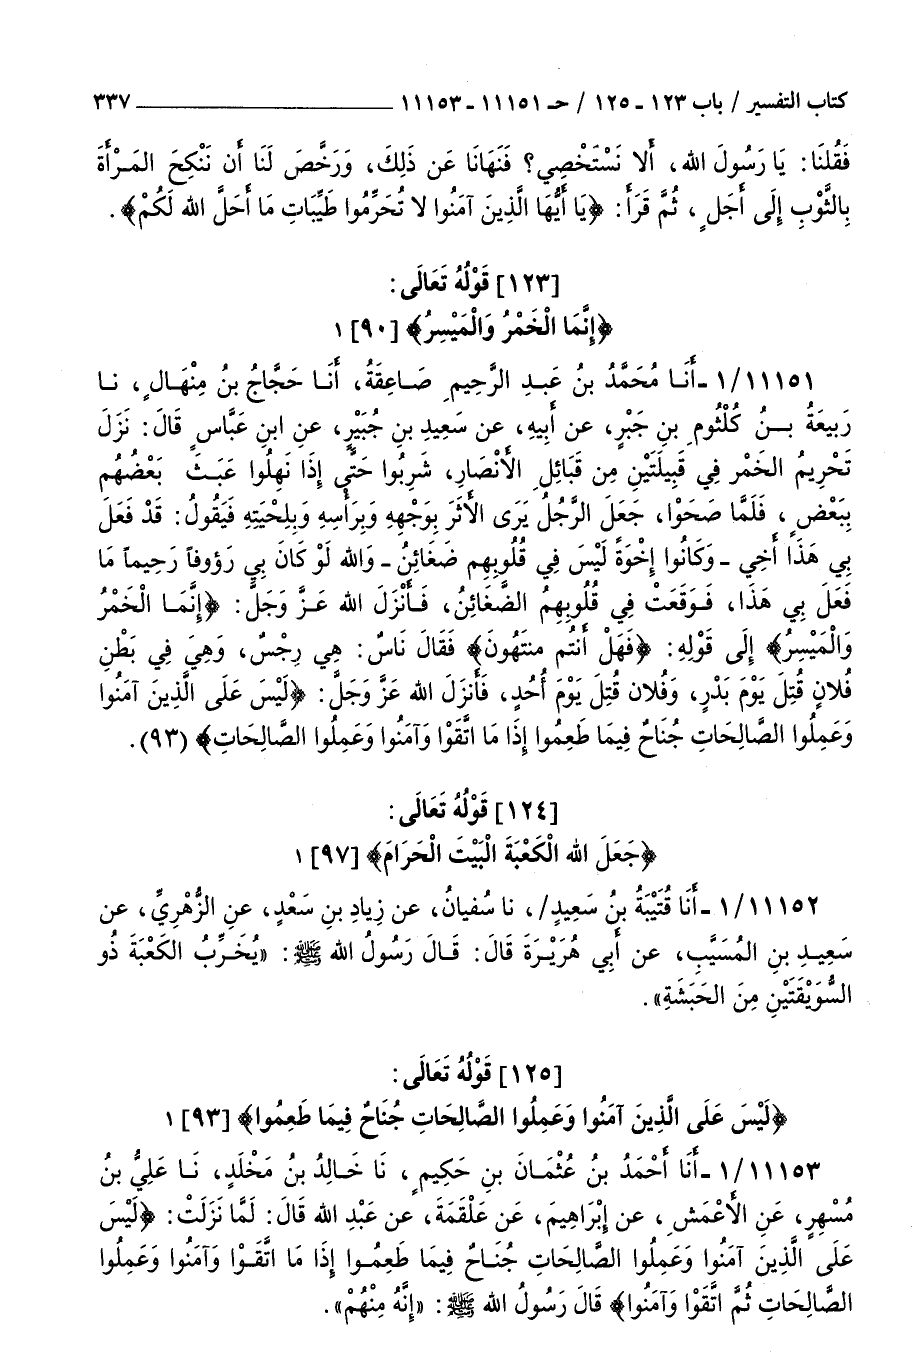 كتاب التفسير / باب ١٢٣ ـ ١٢٥ / حـ ١١١٥١ ـ ١١١٥٣ ٣٣٧
فَقُلنَا: يَا رَسُولَ الله، أَلا نَسْتَخْصِي؟ فَنَهَانَا عَن ذَلِكَ، وَرَخَّصَ لَنَا أَن نَنْكِحَ المَـرْأَةَ
بِالثَّوْبِ إِلَى أَجَلٍ، ثُمَّ قَرَأَ: ﴿يَا أَيُّهَا الَّذِينَ آمَنُوا لا تُحَرِّمُوا طَيِّبَاتِ مَا أَحَلَّ الله لَكُمْ﴾.
[١٢٣] قَوْلُهُ تَعَالَى:
﴿إِنَّمَا الْخَمْرُ وَالْمَيْسِرُ﴾ [٩٠] ١
١/١١١٥١ ـ أَنَـا مُحَمَّدُ بنُ عَبـدِ الرَّحِيمِ صَـاعِقَةُ، أَنَـا حَجَّاجُ بنُ مِنْهَـالٍ، نـا
رَبِيعَةُ بــنُ كُلْثُومِ بنِ جَبْرٍ، عن أَبِيهِ، عن سَعِيدِ بنِ جُبَيْرٍ، عنِ ابنِ عَبَّاسٍ قَالَ: نَزَلَ
تَحْرِيمُ الخَمْر فِي قَبِيلَتَيْنِ مِن قَبَائلِ الأَنْصَارِ، شَرِبُوا حَتَّى إِذَا نَهِلُوا عَبَـثَ بَعْضُهُم
بِبَعْضٍ، فَلَمَّا صَحَوْا، جَعَلَ الرَّجُلُ يَرَى الأَثَرَ بِوَجْهِهِ وَبِرَأْسِهِ وَبِلِحْيَتِهِ فَيَقُولُ: قَدْ فَعَلَ
بِي هَذَا أَخِي ـ وَكَانُوا إِخْوَةً لَيْسَ فِي قُلُوبِهِم ضَغَائِنُ ـ وَالله لَوْ كَانَ بِي رَؤوفاً رَحِيماً مَا
فَعَلَ بِي هَذَا، فَـوَقَعَتْ فِي قُلُوبِهِمُ الضَّغَائِنُ، فَـأَنْزَلَ الله عَـزَّ وَجَلَّ: ﴿إِنَّمَـا الْخَمْرُ
وَالْمَيْسِرُ﴾ إِلَى قَوْلِهِ: ﴿فَهَلْ أَنتُم منتَهُونَ﴾ فَقَالَ نَاسٌ: هِي رِجْسٌ، وَهِيَ فِي بَطْنِ
فُلانٍ قُتِلَ يَوْمَ بَدْرٍ، وَفُلان قُتِلَ يَوْمَ أُحُدٍ، فَأَنزَلَ الله عَزَّ وَجَلَّ: ﴿لَيْسَ عَلَى الَّذِينَ آمَنُوا
وَعَمِلُوا الصَّالِحَاتِ جُنَاحٌ فِيمَا طَعِمُوا إِذَا مَا اتَّقَوْا وَآمَنُوا وَعَمِلُوا الصَّالِحَاتِ﴾ (٩٣).
[١٢٤] قَوْلُهُ تَعَالَى:
﴿جَعَلَ الله الْكَعْبَةَ الْبَيْتَ الْحَرَامَ﴾ [٩٧] ١
١/١١١٥٢ ـ أَنَا قُتَيْبَةُ بنُ سَعِيدٍ/، نا سُفيانُ، عن زِيادِ بنِ سَعْدٍ، عنِ الزُّهْرِيِّ، عن
سَعِيـدِ بنِ المُسَيَّبِ، عن أَبِي هُرَيْـرَةَ قَالَ: قَـالَ رَسُولُ الله ﷺ: «يُخَـرِّبُ الكَعْبَةَ ذُو
السُّوَيْقَتَيْنِ مِنَ الحَبَشَةِ».
[١٢٥] قَوْلُهُ تَعَالَى:
﴿لَيْسَ عَلَى الَّذِينَ آمَنُوا وَعَمِلُوا الصَّالِحَاتِ جُنَاحٌ فِيمَا طَعِمُوا﴾ [٩٣] ١
١/١١١٥٣ ـ أَنَا أَحْمَدُ بنُ عُثْمَـانَ بنِ حَكِيمٍ، نَا خَـالِدُ بنُ مَخْلَدٍ، نَـا عَلِيُّ بنُ
مُسْهِرٍ، عَنِ الأَعْمَشِ، عن إِبْرَاهِيمَ، عَن عَلْقَمَةَ، عن عَبْدِ الله قَالَ: لَمَّا نَزَلَتْ: ﴿لَيْسَ
عَلَى الَّذِينَ آمَنُوا وَعَمِلُوا الصَّالِحَاتِ جُنَـاحٌ فِيمَا طَعِمُـوا إِذَا مَا اتَّقَـوْا وَآمَنُوا وَعَمِلُوا
الصَّالِحَاتِ ثُمَّ اتَّقَوْا وَآمَنُوا﴾ قَالَ رَسُولُ الله ﷺ: «إِنَّهُ مِنْهُمْ».